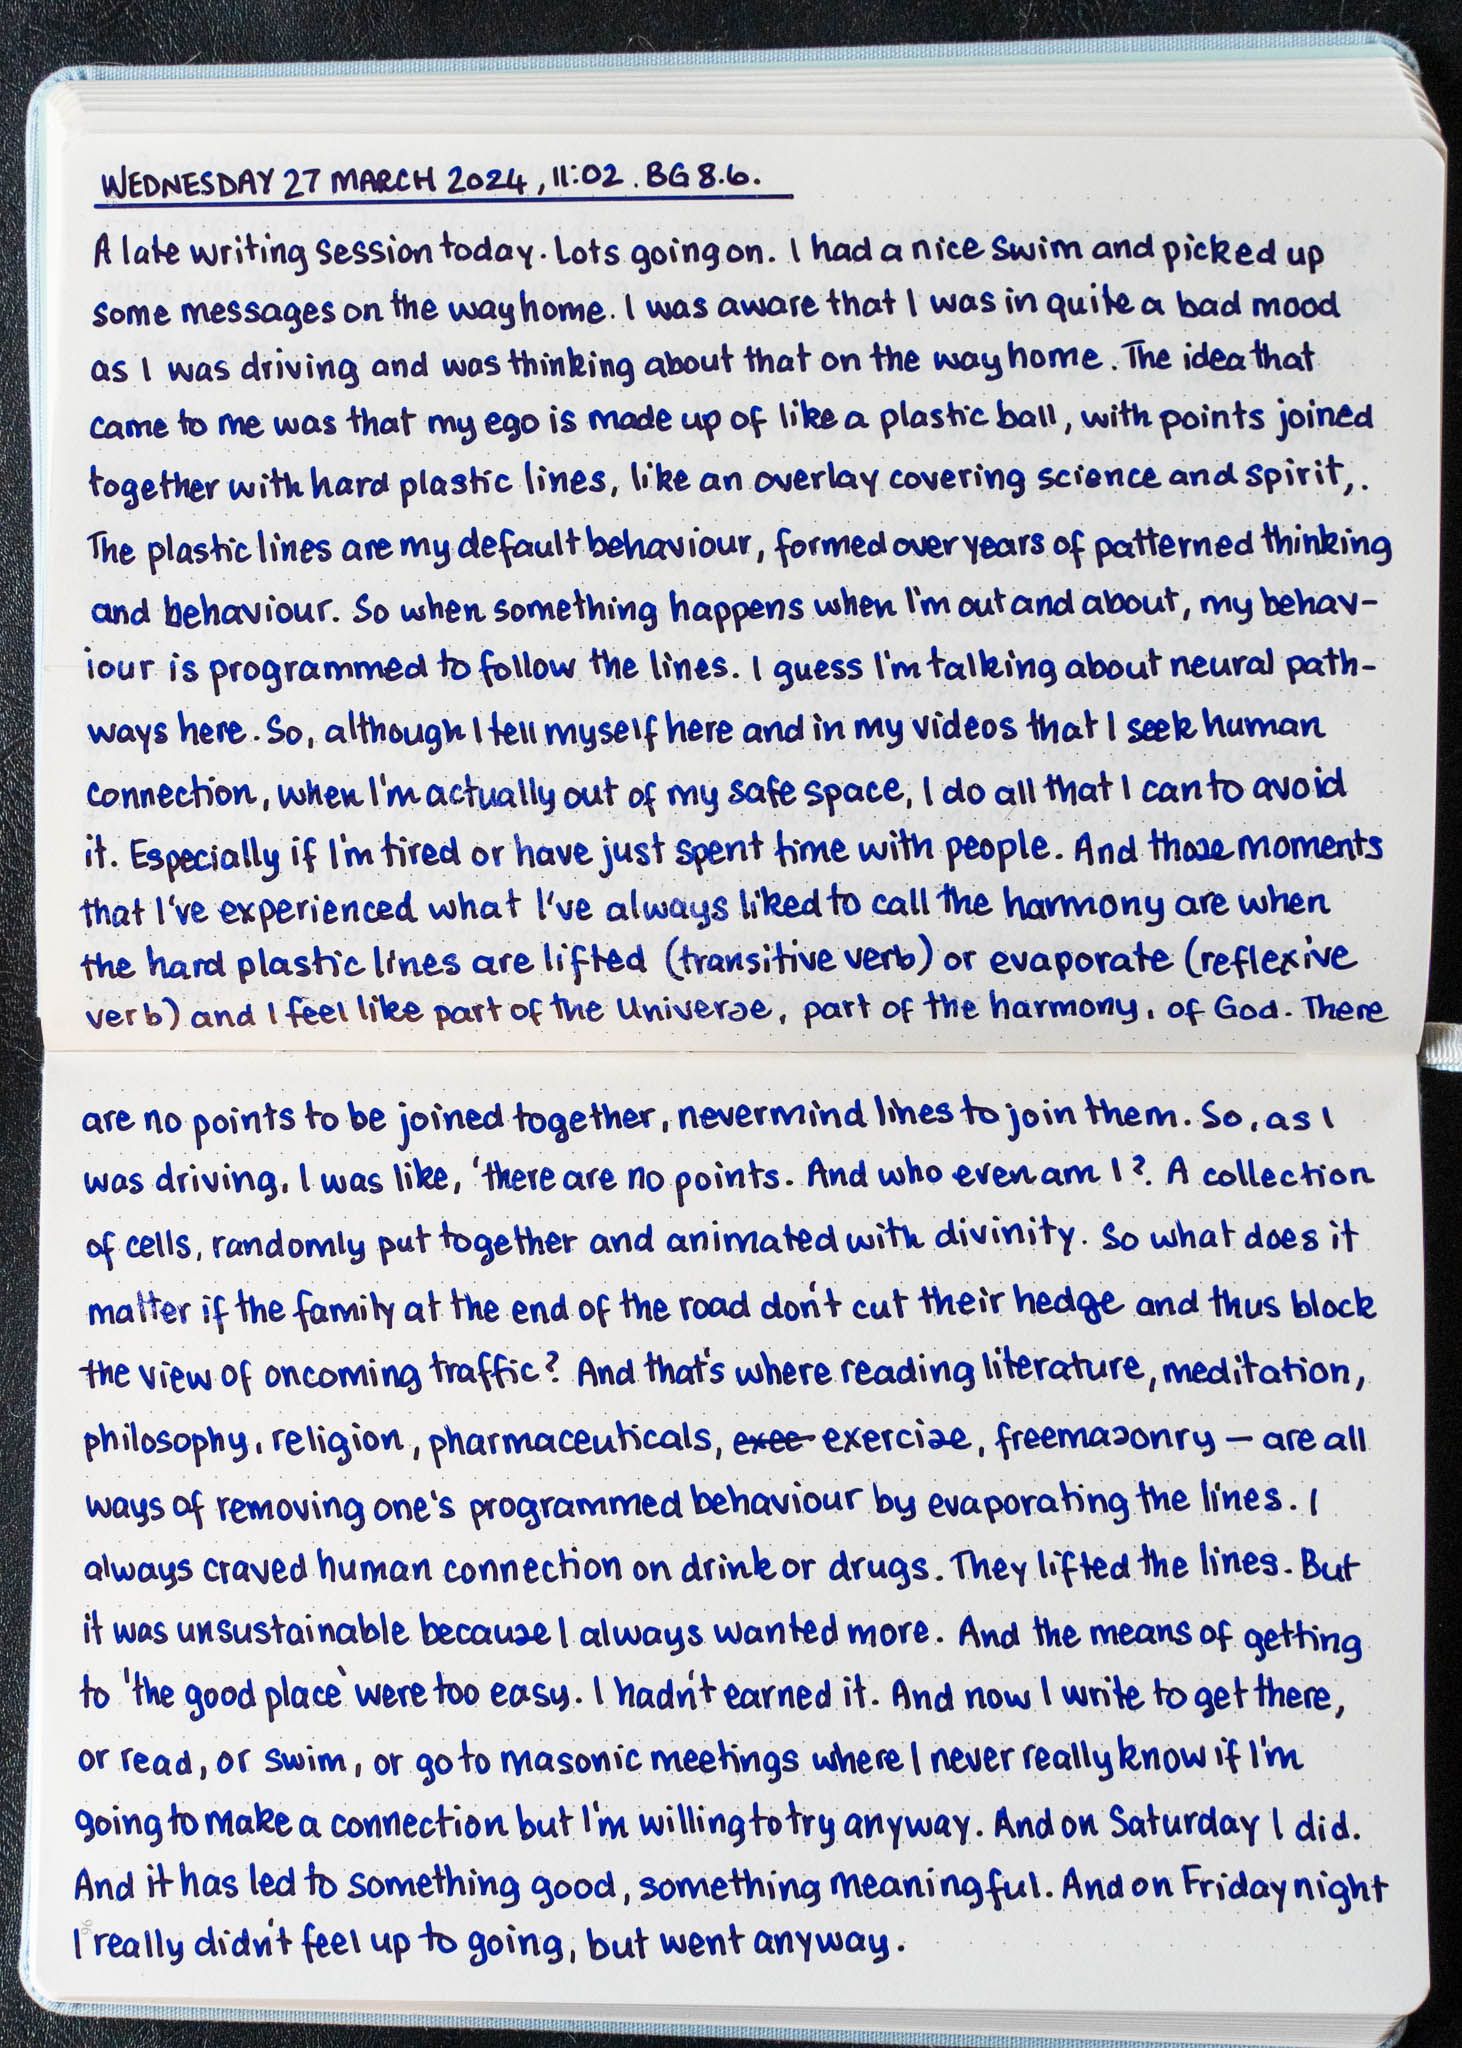 WEDNESDAY 27 MARCH 2024, 11:02. BG 8.6.
A late writing session today. Lots going on. I had a nice swim and picked up
some messages on the way home. I was aware that I was in quite a bad mood
as I was driving and was thinking about that on the way home. The idea that
came to me was that my ego is made up of like a plastic ball, with points joined
together with hard plastic lines, like an overlay covering science and spirit,.
The plastic lines are my default behaviour, formed over years of patterned thinking
and behaviour. So when something happens when I'm out and about, my behav-
iour is programmed to follow the lines. I guess I'm talking about neural path-
ways here. So, although I tell myself here and in my videos that I seek human
connection, when I'm actually out of my safe space, I do all that I can to avoid
it. Especially if I'm tired or have just spent time with people. And those moments
that I've experienced what I've always liked to call the harmony are when
the hard plastic lines are lifted (transitive verb) or evaporate (reflexive
verb) and I feel like part of the Universe, part of the harmony, of God. There
are no points to be joined together, nevermind lines to join them. So, as I
was driving, I was like, 'there are no points. And who even am I?. A collection
of cells, randomly put together and animated with divinity. So what does it
matter if the family at the end of the road don't cut their hedge and thus block
the view of oncoming traffic? And that's where reading literature, meditation,
philosophy, religion, pharmaceuticals, exee exercise, freemasonry – are all
ways of removing one's programmed behaviour by evaporating the lines. I
always craved human connection on drink or drugs. They lifted the lines. But
it was unsustainable because I always wanted more. And the means of getting
to 'the good place' were too easy. I hadn't earned it. And now I write to get there,
or read, or swim, or go to masonic meetings where I never really know if I'm
going to make a connection but I'm willing to try anyway. And on Saturday I did.
And it has led to something good, something meaningful. And on Friday night
I really didn't feel up to going, but went anyway.
96